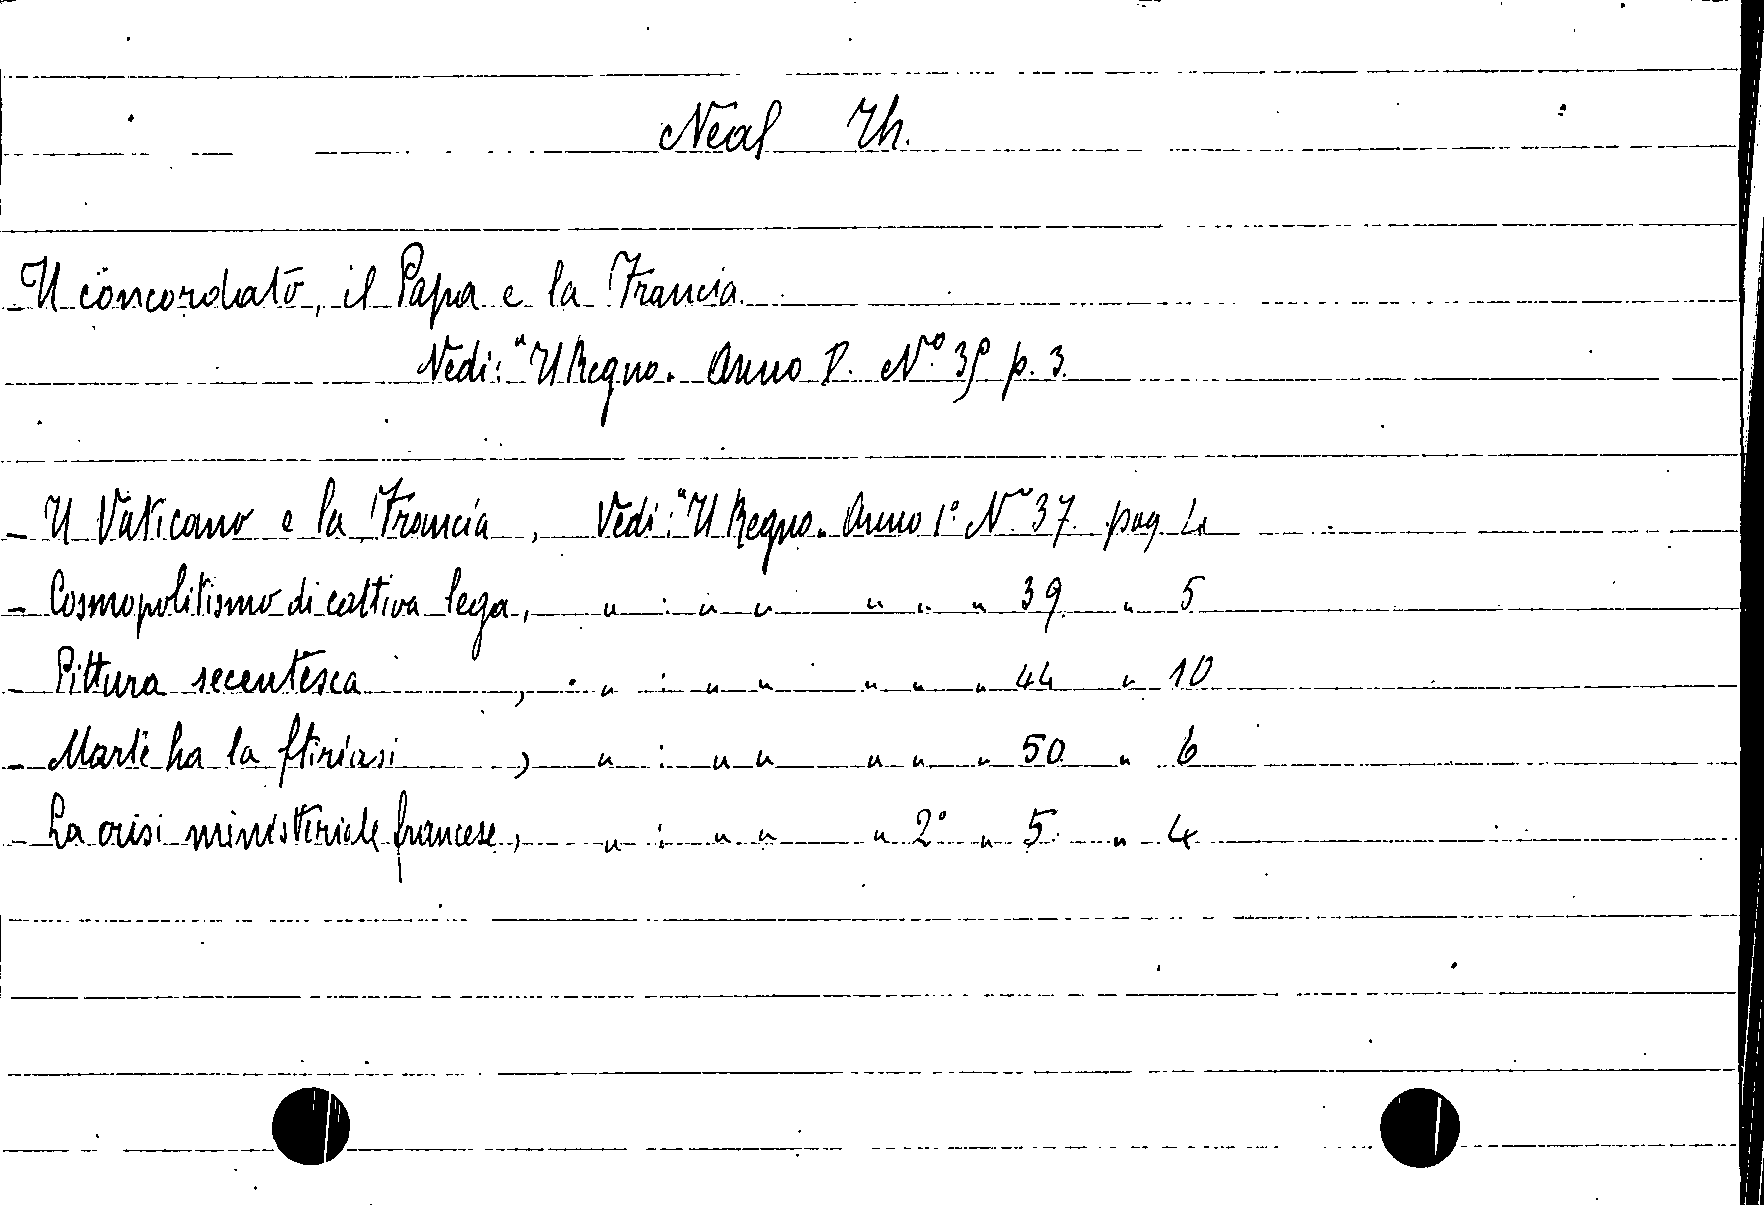 Neal Th.
Il concordato, il Papa e la Francia.
Vedi: "Il Regno. Anno I. Nº 35 p. 3.
- Il Vaticano e la Francia, Vedi: "Il Regno. Anno 1º Nº 37. pag. 4
- Cosmopolitismo di cattiva lega, " : " " " " " 39. " 5
- Pittura secentesca , " : " " " " " 44 " 10
- Marte ha la ftiriasi , " : " " " " " 50 " 6
- La crisi ministeriale francese, " : " " " 2º " 5. " 4